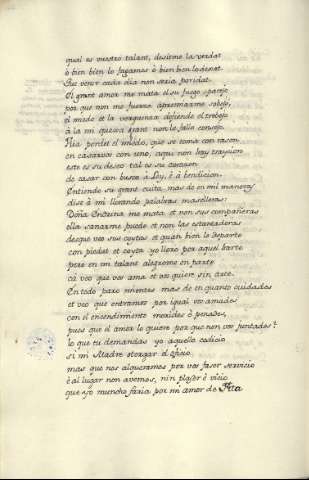 qual es vuestro talant, desitme la verdat
ò bien bien lo fagamos ò bien bien lo dexat
Que venir cada dia non seria poridat.
El grant amor me mata el su fuego parejo
por que non me fuerza apremiarme sobejo,
el miedo et la verguenza defiende el trebejo
à la mi quexa grant non le fallo consejo.
Fija perdet el miedo, que se toma con rason,
en casarvos con uno, aqui non hay traycion
este es su deseo tal es su corazon
de casar con busco à Ley, è à bendicion.
Entiendo su grant cuita, mas de en mil maneras
dise à mi llorando palabras manselleras:
Doña Endrina me mata et non sus compañeras
ella sanarme puede et non las
desque veo sus coytas et quan bien lo departe
con piedat et coyta yo lloro por aquel
pero en mi talant alegrome en parte
cà veo que vos ama et vos quiere sin arte.
En todo paro mientes mas de en quanto cuidades
et veo que entramos por igual vos amades
con el encendimiento morides è penades,
pues que el amor lo quiere por que non vos juntades?
lo que tu demandas yo aquello codicio
si mi Madre otorgar el oficio
mas que nos alqueramos por vos faser servicio
è al lugar non avemos, nin plaser è vicio
que yo muncho faria por mi amor de Hita